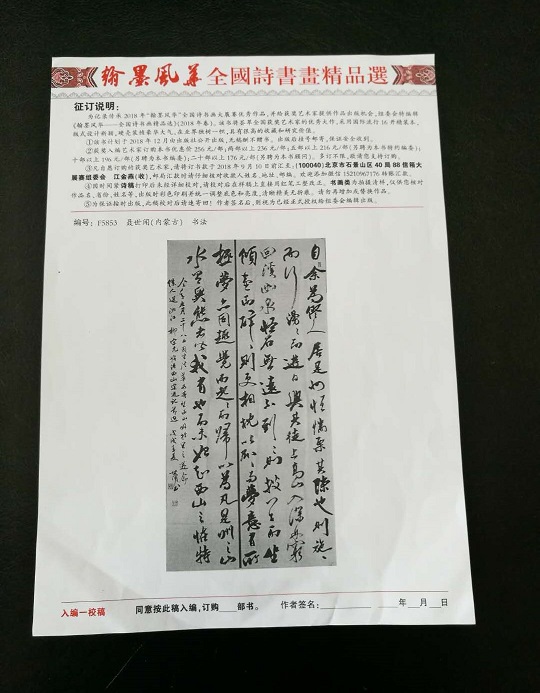 翰墨风华全國詩書畫精品選
征订说明:
为记录传承2018年“翰墨风华”全国诗书画大展赛优秀作品,并给获奖艺术家提供作品出版机会,组委会特编辑
《翰墨风华——全国诗书画精品选》(2018年卷)。该书将荟萃全国获奖艺术家的优秀大作,采用国际流行16开精装本。
版式设计新颖,硬壳装桢豪华大气,在业界独树一帜,具有很高的收藏和研究价值。
①该书计划于2018年12月由出版社公开出版,无稿酬不赠书。出版后挂号邮寄,保证安全收到。
②获奖入编艺术家订购本书优惠价256元/部,两部以上236元/部,五部以上216元/部(另聘为本书特约编委);
十部以上196元/部(另聘为本书编委);二十部以上176元/部(另聘为本书顾问)。多订不限,敬请您支持订购。
③凡自愿订购的获奖艺术家,请将订书款于2018年9月10日前汇至:(100040)北京市石景山区40局88信箱大
展赛组委会 江金燕(收),邮局汇款时请仔细核对收款人姓名、地址、邮编。欢迎添加微信15210967176转账汇款。
④因时间紧诗稿打印后未经详细校对,请校对后在样稿上直接用红笔工整改正。书画类为拍摄清样,仅供您核对
作品名、省份、姓名等,出版时彩色印刷并统一调整底色和亮度,请酬精美无折痕。请勿再增加或替换作品。
⑤为保证按时出版,此稿校对后请速寄回!作者签名后,则视为已经正式授权给组委会编辑出版。
编号:F5853 聂世闻(内蒙古) 书法
自余为僇人居是州恒惴栗其隙也则施施
而行漫漫而游日与其徒上高山入深林穷
回溪幽泉怪石无远不到到则披草而坐
倾壶而醉醉则更相枕以卧卧而梦意有所
极梦亦同趣觉而起起而归以为凡是州之山
水有异态者皆我有也而未始知西山之怪特
入编一校稿 同意按此稿入编,订购____部书。 作者签名:________ ____年__月__日